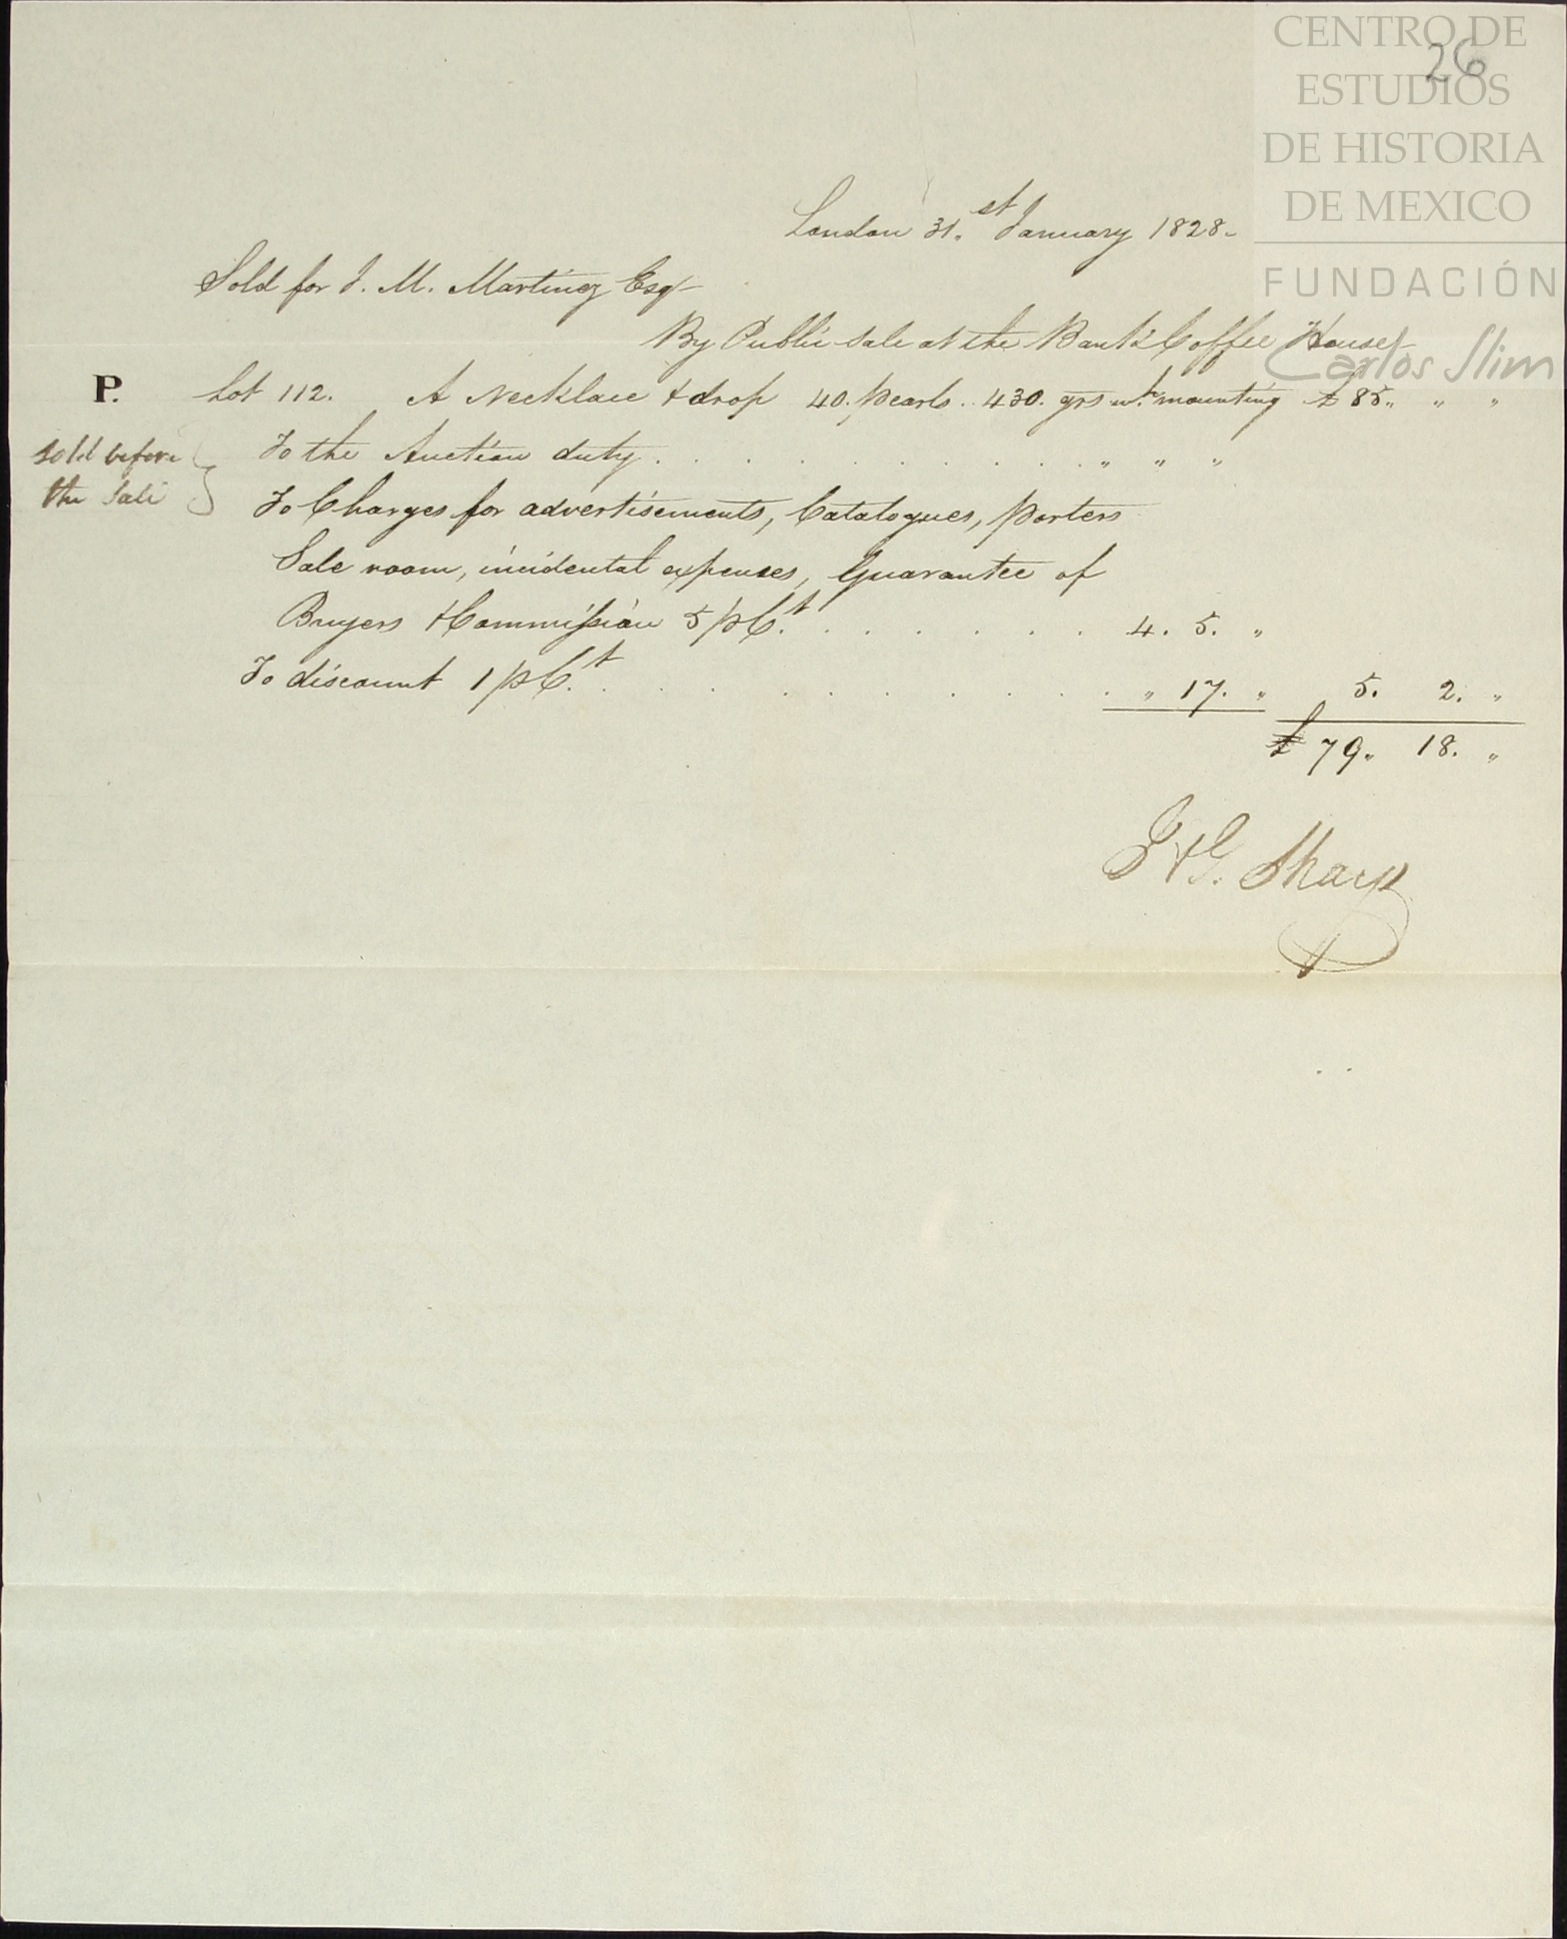 CENTRO DE
ESTUDIOS
DE HISTORIA
DE MEXICO
FUNDACIÓN
Carlos Slim
26
London 31.st January 1828-
Sold for J. M. Martinez Esqr
By Public Sale at the Bank Coffee House
P. Lot 112. A Necklace & drop 40. pearls. 430. grs wt. mounting £ 85. " "
sold before
the Sale
To the Auction duty . . . . . . . . . . . " " "
To Charges for advertisements, Catalogues, porters
Sale room, incidental expenses, Guarantee of
Buyers & Commission 5 p Ct. . . . . . . . . 4. 5. "
To discount 1 p Ct. . . . . . . . . . " 17. " 5. 2. "
£ 79. 18. "
& G. Sharp